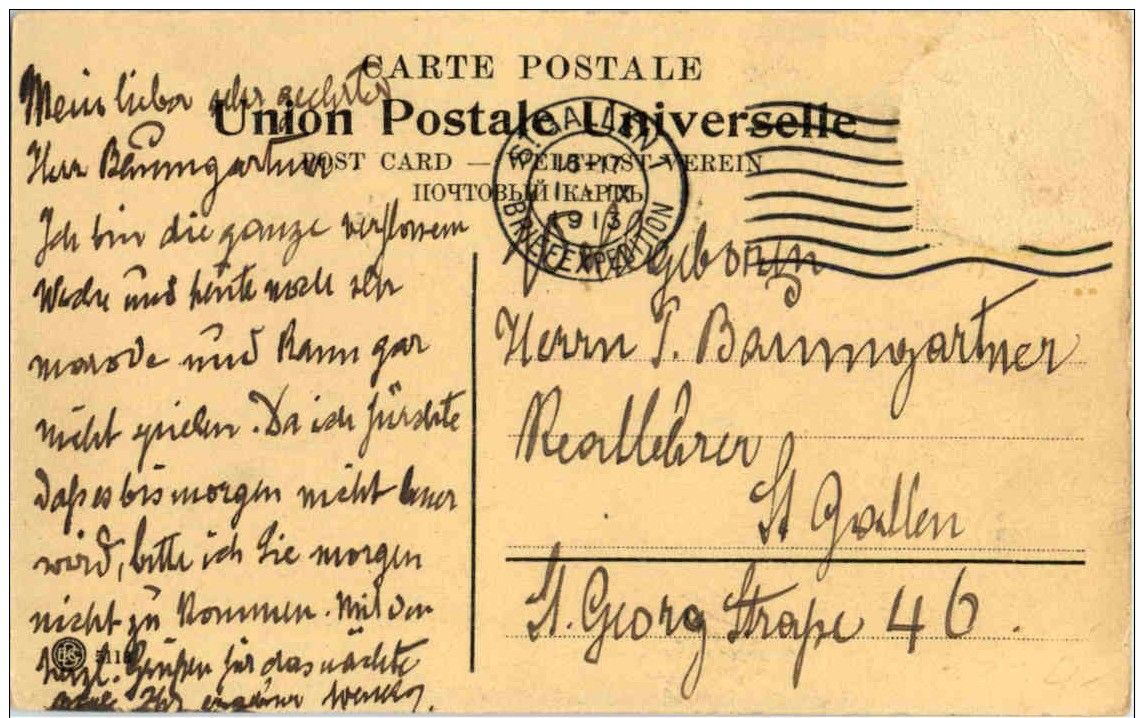 CARTE POSTALE
Union Postale Universelle
POST CARD — WELTPOST-VEREIN
ПОЧТОВЫЙ КАРТЬ
ST. GALLEN 1
16-17
IX
1913
BRIEFEXPEDITION
Mein lieber sehr geehrter
Herr Baumgartner
Ich bin die ganze verflossene
Woche und heute noch sehr
marode und kann gar
nicht spielen. Da ich fürchte
daß es bis morgen nicht besser
wird, bitte ich Sie morgen
nicht zu kommen. Mit den
herzl. Grüßen für das nächste
Ihr ergebener
Geboren
Herrn J. Baumgartner
Reallehrer
St Gallen
St. Georg Straße 46.